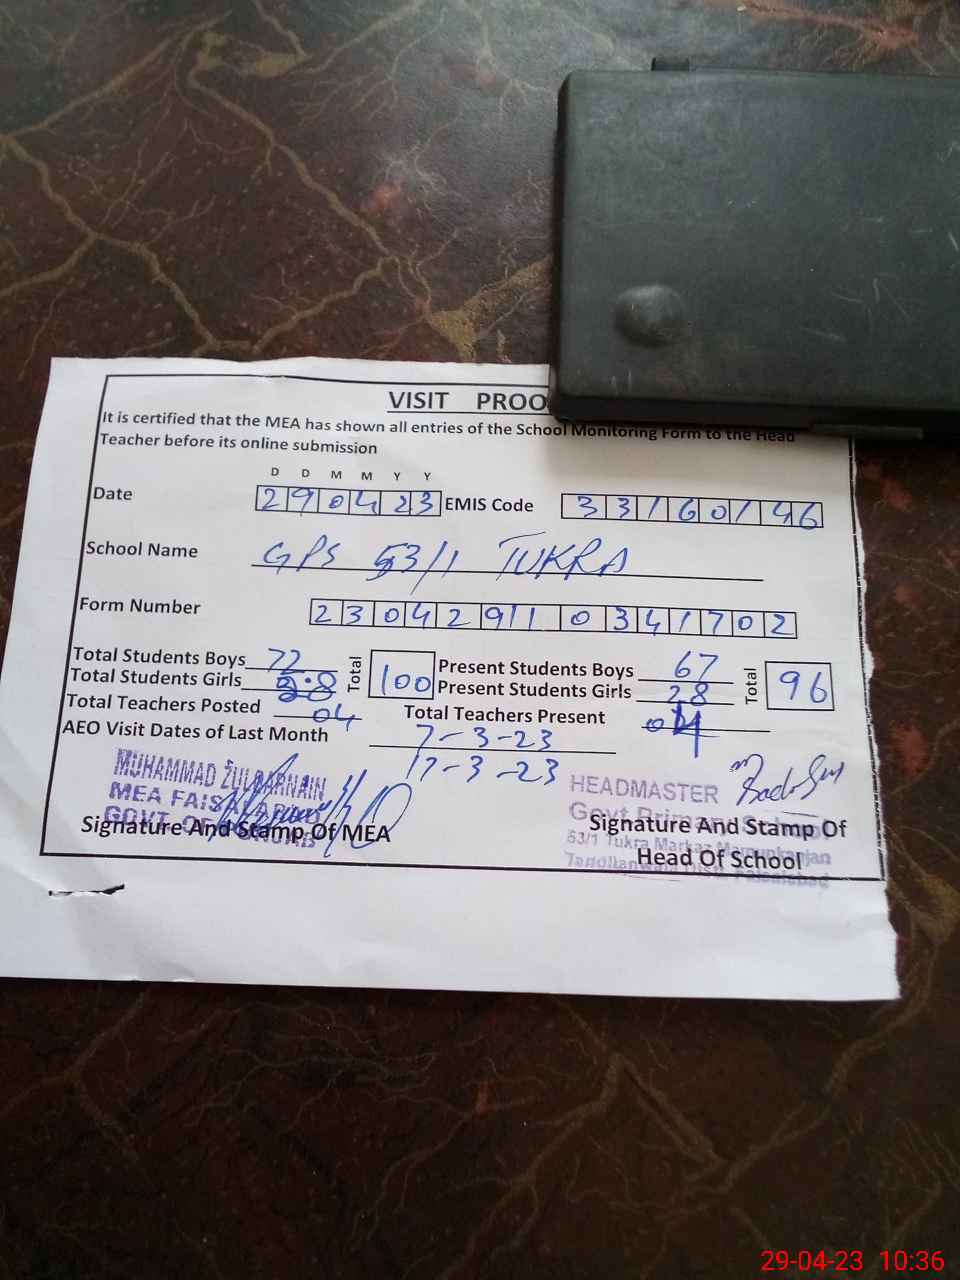 VISIT PROO
It is certified that the MEA has shown all entries of the School Monitoring Form to the Head
Teacher before its online submission
D D M M Y Y
Date 290423 EMIS Code 33160146
School Name GPS 53/1 TUKRA
Form Number 230429110341702
Total Students Boys 72 Total 100 Present Students Boys 67 Total 96
Total Students Girls 28 Present Students Girls 28
Total Teachers Posted 04 Total Teachers Present 04
AEO Visit Dates of Last Month 7-3-23
17-3-23
MUHAMMAD ZULQARNAIN
MEA FAISALABAD
GOVT OF PUNJAB
Signature And Stamp Of MEA
HEADMASTER
Govt Primary School
53/1 Tukra Markaz Mamunkanjan
Tandlianwala Distt. Faisalabad
Signature And Stamp Of
Head Of School
29-04-23 10:36